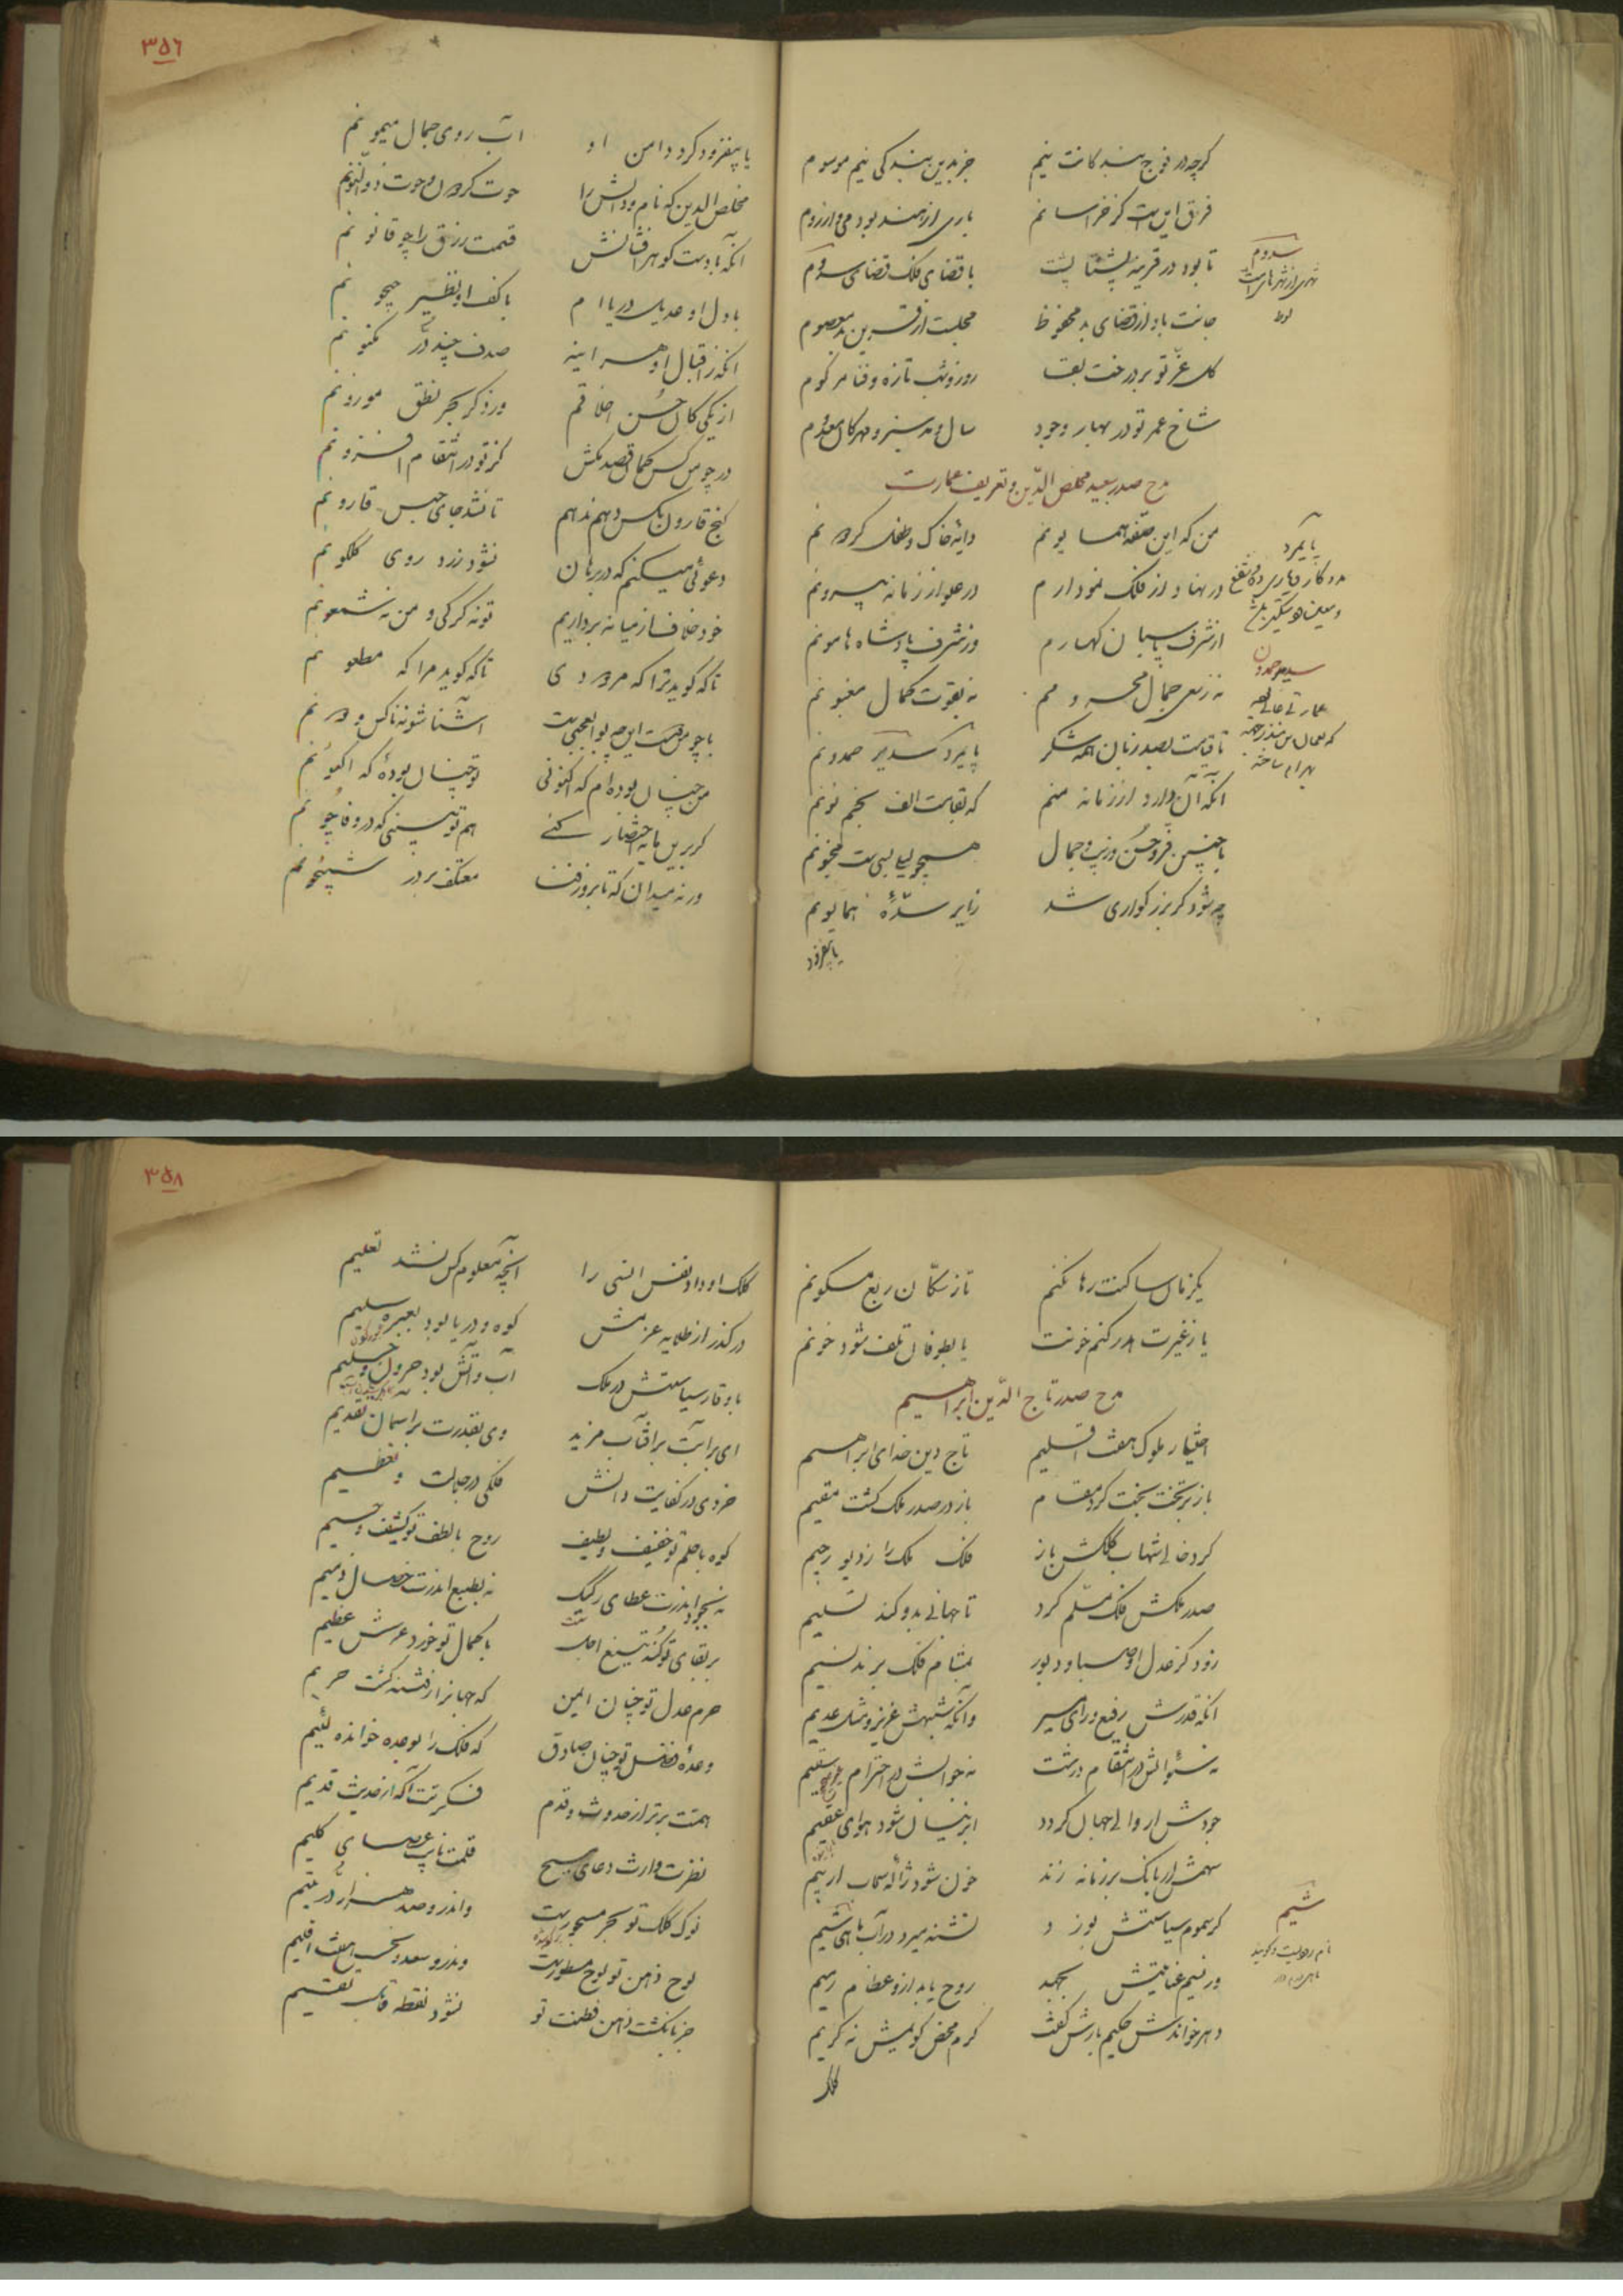 گرچه در فوج بندکانت نیم جز بدین بندکی نیم موسوم
فرق این است کز خراسانم باری از هند بودمی و از روم
تا بود در قرینه پشتاپشت با قضای فلک قضای سدوم
جانت باد از قضای بد محفوظ مجلست از قرین بد معصوم
کل عز تو بر درخت بقا روز و شب تازه و فنا مزکوم
شاخ عمر تو در بهار وجود سال و مه سبز و مهرکان معدوم
مدح صدر سعید مخلص الدین و تعریف عمارت
من که این صفه همایونم دایه خاک و طفل کردونم
در نهاد از فلک نمودارم در علو از زمانه بیرونم
از شرف پاسبان کهسارم وز شرف پادشاه هامونم
نه ز سعی جمال محرومم نه بقوت کمال مغبونم
تا قیامت بصد زبان همه شکر پایمرد سدیر حمدونم
آنکه آن دارد از زمانه منم که بقامت الف بخم نونم
با چنین فر و حسن و زیب و جمال همچو لیلی بسی است مجنونم
چه شود کر بزرکواری شد زایر سده همایونم
یا بیفزود
سدوم
شهری از شهرهای است
لوط
پایمرد
مددکار و یاری ده و شفیع
سدیر و حمدون
۳۵۶
یا بیفزود کرد دامن او آب روی جمال میمونم
مخلص الدین که نام و دانش را حوت کردون و حوت ذوالنونم
آنکه با دست کوهرافشانش قیمت رزق را چو قانونم
با دل او عدیل دریاام با کف او نظیر جیحونم
آنکه ز اقبال او هر آینه صدف چند در مکنونم
از یکی کان حسن اخلاقم وز دکر بحر نطق موزونم
در چو من کس کمان قصد مکش کز تو در انتقام افزونم
کنج قارون بکس دهم ندهم تا نشد جای حبس قارونم
دعوئی میکنم که در برهان نشود زرد روی کلکونم
خود خلاف از میانه برداریم تو نه کرکی و من نه شمعونم
تا که کوید ترا که مردودی تا که کوید مرا که مطعونم
با چو من کست این چه بوالعجبی است آشنا شو نه ناکس و دونم
من چنان بوده‌ام که اکنونی تو چنان بوده که اکنونم
کر برین مایه اختصار کنی هم تو بینی که در وفا چونم
ورنه میدان که تا بروز فنا معتکف بر در شبیخونم
یکزمان ساکنت رها نکنم تا ز سکان ربع مسکونم
یا ز غیرت هدر کنم خونت یا بطوفان تلف شود خونم
مدح صدر تاج الدین ابراهیم
اختیار ملوک هفت اقلیم تاج دین خدای ابراهیم
باز بر تخت بخت کرد مقام باز در صدر ملک کشت مقیم
کرد خالی شهاب کلکش باز فلک ملک را ز دیو رجیم
صدر ملکش فلک مسلم کرد تا جهانی بدو کند تسلیم
زود کز عدل او صبا و دبور بمشام فلک برند نسیم
آنکه قدرش رفیع و رای منیر وانکه شبهش عزیز و مثل عدیم
نه سؤالش در انتقام درشت نه جوابش در احترام سقیم
جودش ار والی جهان کردد ابر نیسان شود هوای عقیم
سهمش ار بانک بر زمانه زند خون شود ژاله سحاب ار بیم
کر سموم سیاستش بوزد تشنه میرد در آب ماهی شیم
ور نسیم عنایتش بجهد روح یابد ازو عظام رمیم
دهر خواندش حکیم بازش کفت کرم محض کویمش نه کریم
کلک
شیم
۳۵۸
کلک او داد نفس انسی را آنچه معلوم کس نشد تعلیم
در کذر از طلایه عزمش کوه و دریا بود بعبره سلیم
با وقار سیاستش در ملک آب و آتش بود حرون و حلیم
ای برایت بر آفتاب مزید وی بقدرت بر آسمان تقدیم
خردی در کفایت و دانش فلکی در جلالت و تعظیم
کوه با حلم تو خفیف و لطیف روح با لطف تو کثیف و جسیم
نه بجود اندرت عطای رکیک نه بطبع اندرت خصال ذمیم
بر بقای تو کند تیغ اجل با کمال تو خرد عرش عظیم
حرم عدل تو چنان ایمن که جهانرا ز فتنه کشت حریم
وعده فضل تو چنان صادق که فلک را بوعده خوانده لئیم
همتت برتر از حدوث و قدم فکرتت آکه از حدیث قدیم
نظرت وارث دعای مسیح قلمت نایب عصای کلیم
نوک کلک تو بحر مسجور است واندرو صد هزار در یتیم
لوح ذهن تو لوح مسطور است وندرو سعد و نحس هفت اقلیم
جز بانکشت ذهن و فطنت تو نشود نقطه قابل تقسیم